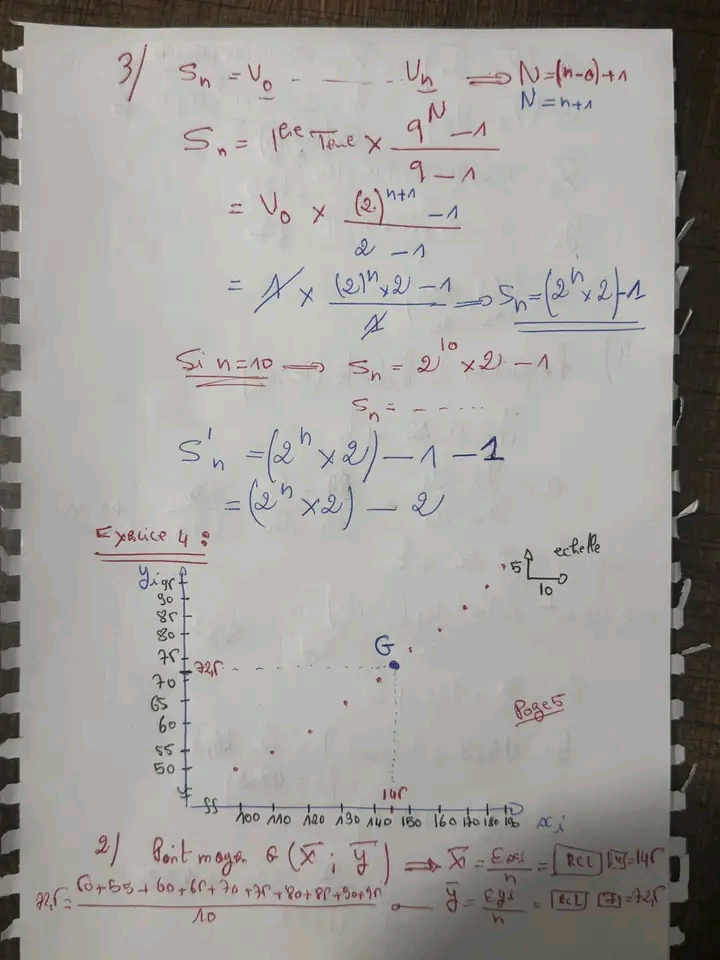 3/ Sn = V0 - - - - - Un ⟹ N = (n-0)+1
N = n+1
Sn = 1ere Terme × (q^N - 1)/(q - 1)
= V0 × ((2)^(n+1) - 1)/(2 - 1)
= 1 × ((2)^n × 2 - 1)/1 ⟹ Sn = (2^n × 2) - 1
Si n=10 ⟹ Sn = 2^10 × 2 - 1
Sn = - - - - -
S'n = (2^n × 2) - 1 - 1
= (2^n × 2) - 2
Exercice 4 :
echelle
5
10
yi
95
90
85
80
75
72,5
70
65
60
55
50
G
Page 5
145
100 110 120 130 140 150 160 170 180 190 xi
2/ Point moyen G (X̄ ; Ȳ) ⟹ X̄ = Σxi/n = RCL 4 = 145
72,5 = (50+55+60+65+70+75+80+85+90+95)/10 ȳ = Σyi/n = RCL 7 = 72,5